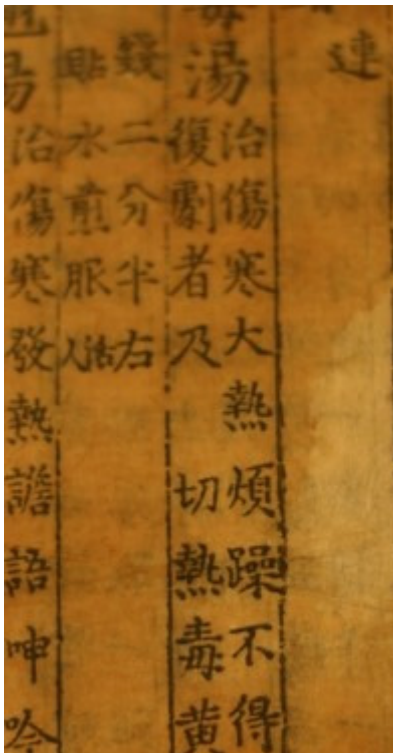 連
毒湯
治傷寒大熱煩躁不得
復劇者及切熱毒黃
錢二分半右
貼水煎服活人
湯治傷寒發熱譫語呻吟